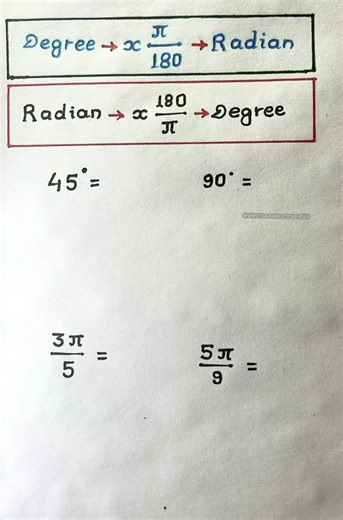 Degree → x π/180 → Radian
Radian → x 180/π → Degree
45° = 90° =
3π/5 = 5π/9 =